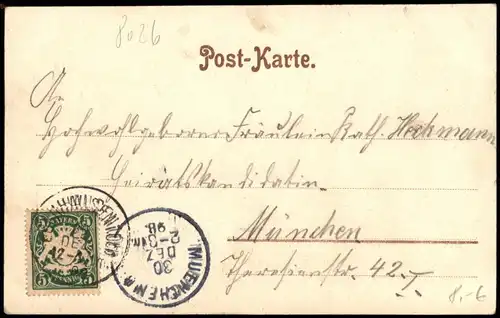 8026
Post-Karte.
An
Hochwohlgeboren Fräulein Kath. Heckmann
Heiratskandidatin
München
Theresienstr. 42.
BAYERN
12-
MUENCHEN
30
DEZ
2-3
98
8.-6